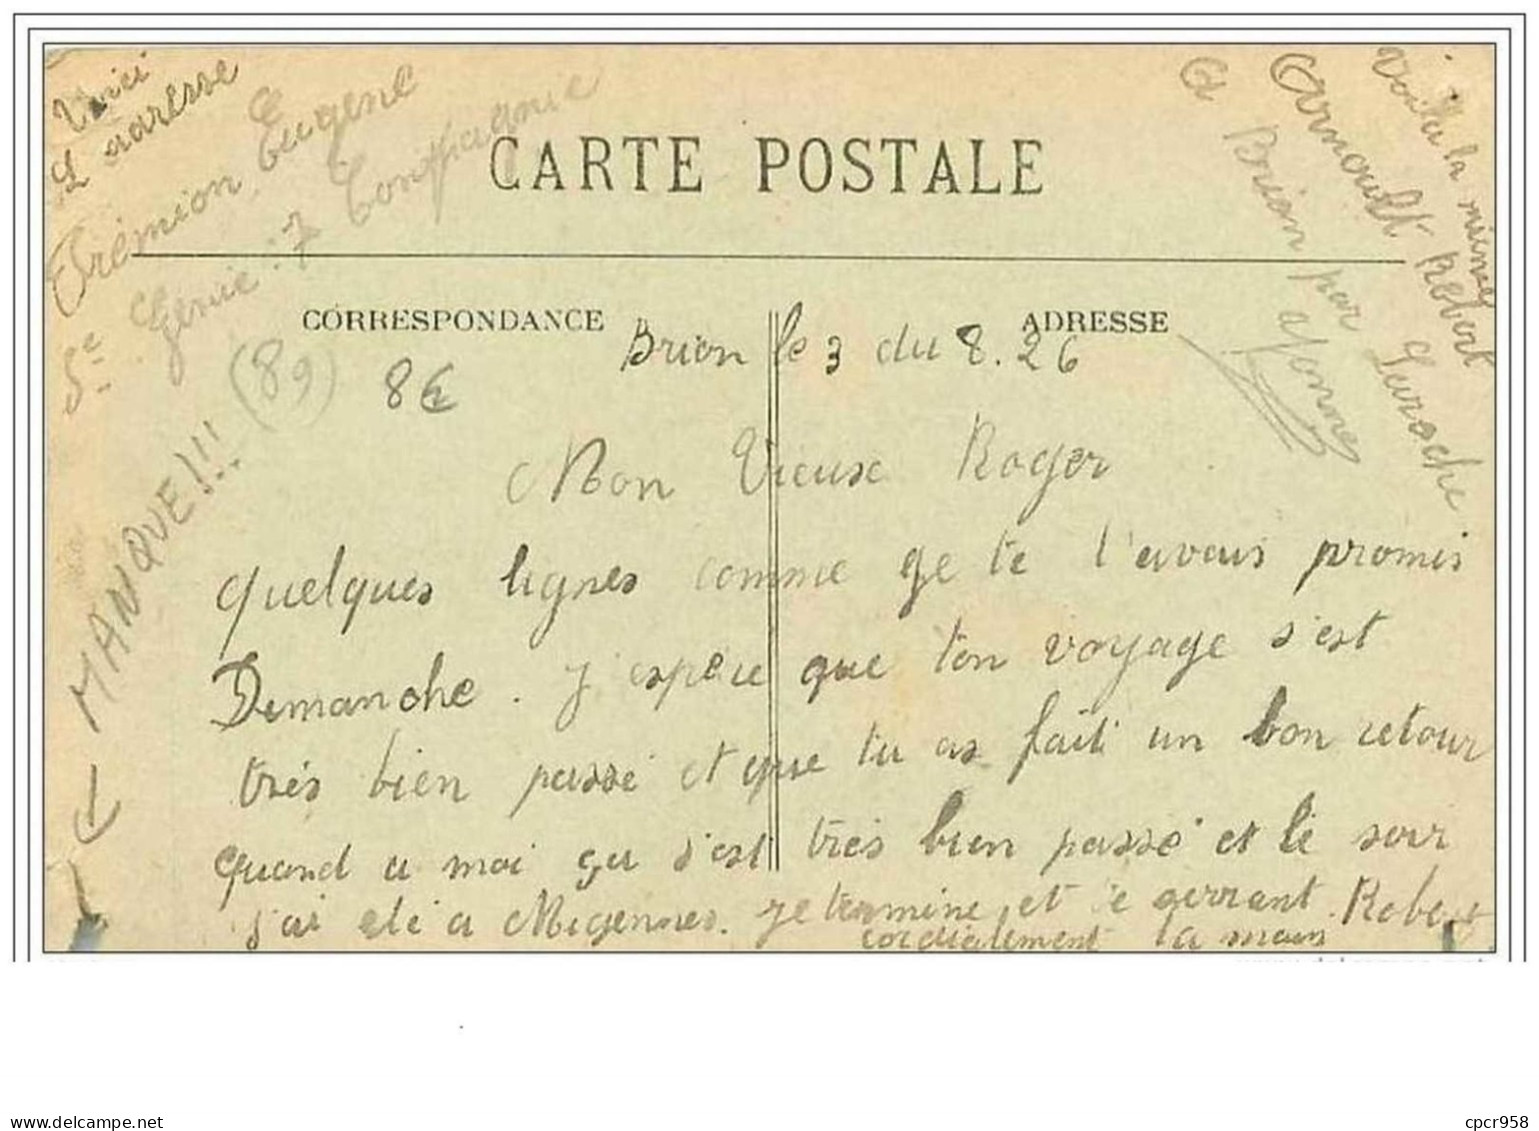 Voici
L'adresse
Trémion Eugene
5e Génie : 7 Compagnie
CARTE POSTALE
Voila la mienne
Arnoult Robert
a Brion par Laroche
Yonne
CORRESPONDANCE
ADRESSE
(89)
8€
MANQUE!!!
Brion le 3 du 8. 26
Mon Vieux Roger
quelques lignes comme ge te l'avais promis
Dimanche. J'espère que ton voyage s'est
très bien passé et que tu as fait un bon retour
quand a moi ça s'est très bien passé et le soir
j'ai été a Migennes. je termine et te serrant Robert
cordialement la main
cpcr958